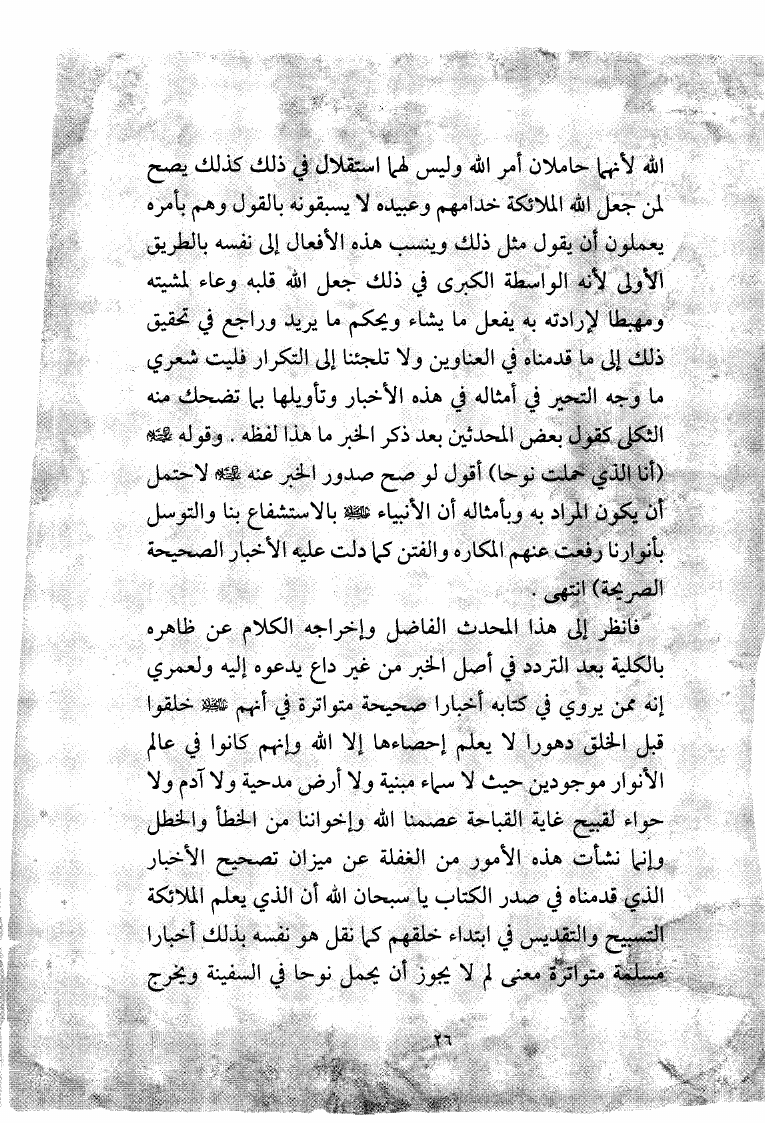 الله لأنهما حاملان أمر الله وليس لهما استقلال في ذلك كذلك يصح
لمن جعل الله الملائكة خدامهم وعبيده لا يسبقونه بالقول وهم بأمره
يعملون أن يقول مثل ذلك وينسب هذه الأفعال إلى نفسه بالطريق
الأولى لأنه الواسطة الكبرى في ذلك جعل الله قلبه وعاء لمشيته
ومهبطا لإرادته به يفعل ما يشاء ويحكم ما يريد وراجع في تحقيق
ذلك إلى ما قدمناه في العناوين ولا تلجئنا إلى التكرار فليت شعري
ما وجه التحير في أمثاله في هذه الأخبار وتأويلها بما تضحك منه
الثكلى كقول بعض المحدثين بعد ذكر الخبر ما هذا لفظه . وقوله
(أنا الذي حملت نوحا) أقول لو صح صدور الخبر عنه لاحتمل
أن يكون المراد به وبأمثاله أن الأنبياء بالاستشفاع بنا والتوسل
بأنوارنا رفعت عنهم المكاره والفتن كما دلت عليه الأخبار الصحيحة
الصريحة) انتهى .
فانظر إلى هذا المحدث الفاضل وإخراجه الكلام عن ظاهره
بالكلية بعد التردد في أصل الخبر من غير داع يدعوه إليه ولعمري
إنه ممن يروي في كتابه أخبارا صحيحة متواترة في أنهم خلقوا
قبل الخلق دهورا لا يعلم إحصاءها إلا الله وإنهم كانوا في عالم
الأنوار موجودين حيث لا سماء مبنية ولا أرض مدحية ولا آدم ولا
حواء لقبيح غاية القباحة عصمنا الله وإخواننا من الخطأ والخطل
وإنما نشأت هذه الأمور من الغفلة عن ميزان تصحيح الأخبار
الذي قدمناه في صدر الكتاب يا سبحان الله أن الذي يعلم الملائكة
التسبيح والتقديس في ابتداء خلقهم كما نقل هو نفسه بذلك أخبارا
مسلمة متواترة معنى لم لا يجوز أن يحمل نوحا في السفينة ويخرج
٢٦